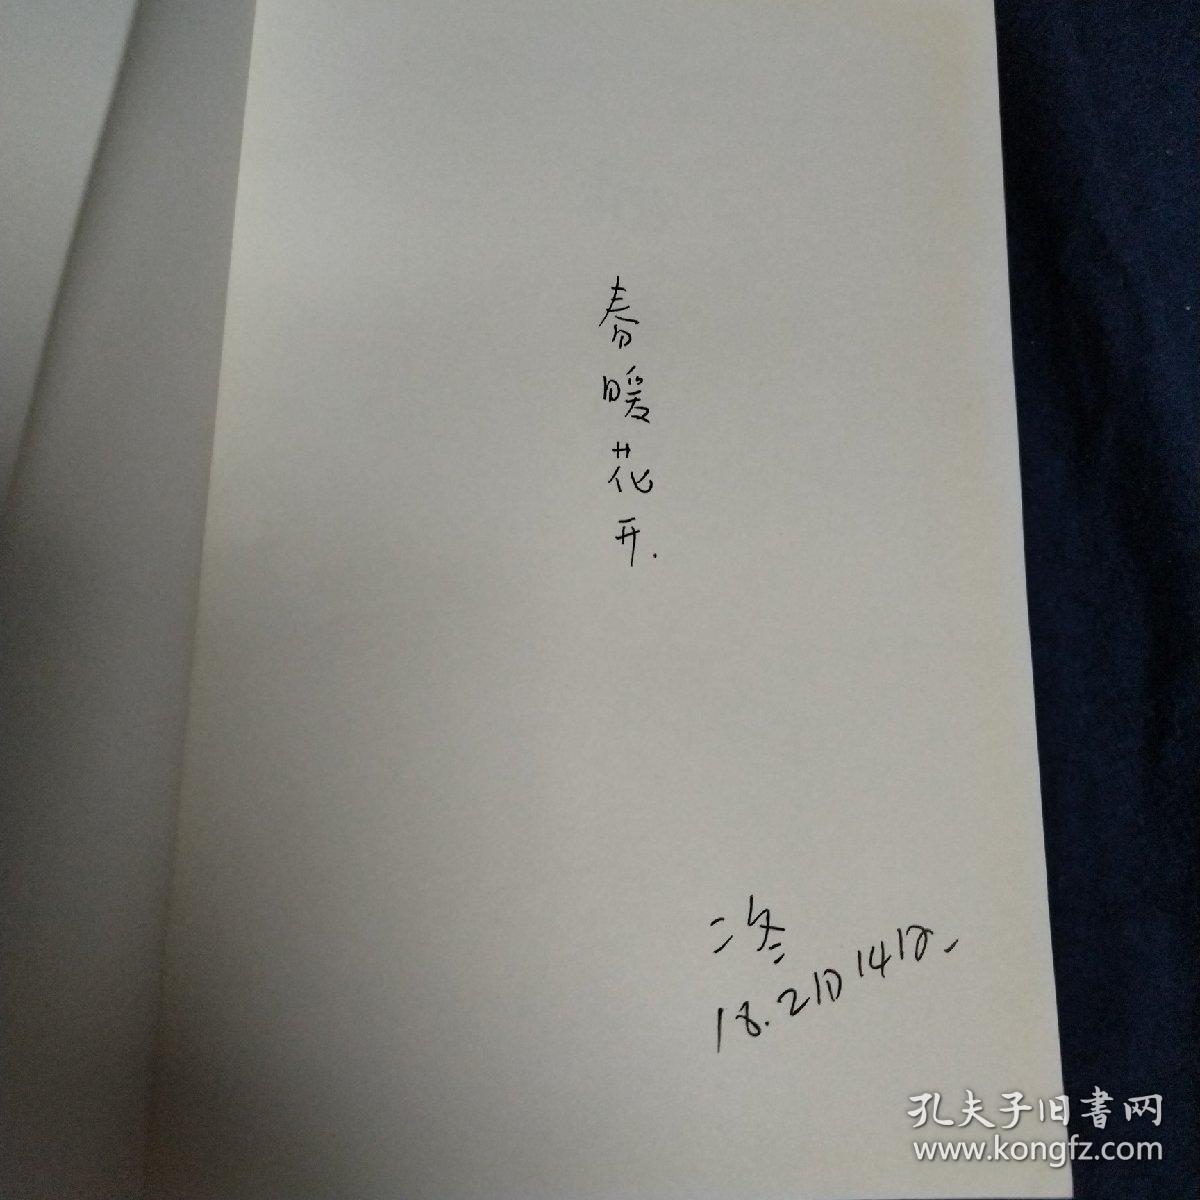 春暖花开.
冬
18.2月14日
孔夫子旧書网
www.kongfz.com